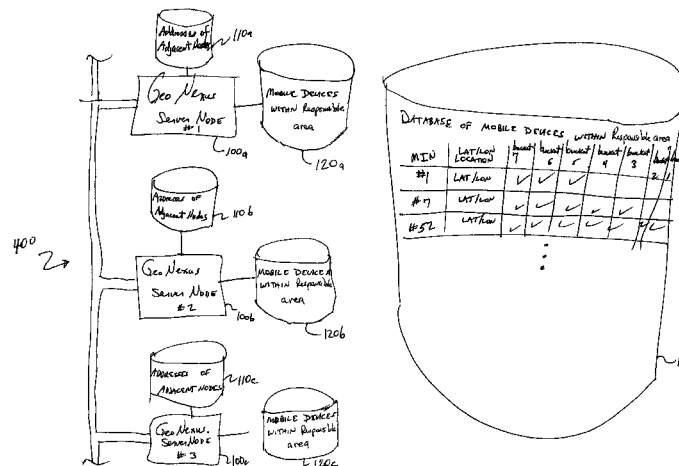 Addresses of
Adjacent Nodes
110a
Geo Nexus
Server Node
#1
100a
Mobile Devices
within Responsible
area
120a
Addresses of
Adjacent Nodes
110b
400
Geo Nexus
Server Node
#2
100b
Mobile Devices
within Responsible
area
120b
Addresses of
Adjacent Nodes
110c
Geo Nexus
Server Node
#3
100c
Mobile Devices
within Responsible
area
120c
Database of Mobile Devices within Responsible area
MIN LAT/LON LOCATION bucket 7 bucket 6 bucket 5 bucket 4 bucket 3 2 1
#1 LAT/LON ✓ ✓ ✓
#7 LAT/LON ✓ ✓ ✓ ✓ ✓
#52 LAT/LON ✓ ✓ ✓ ✓ ✓ ✓ ✓